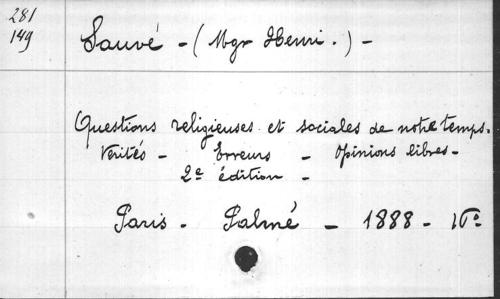 281
149
Sauvé - (Mgr Henri.) -
Questions religieuses et sociales de notre temps.
Vérités - Erreurs - Opinions libres -
2e édition -
Paris - Palmé - 1888 -